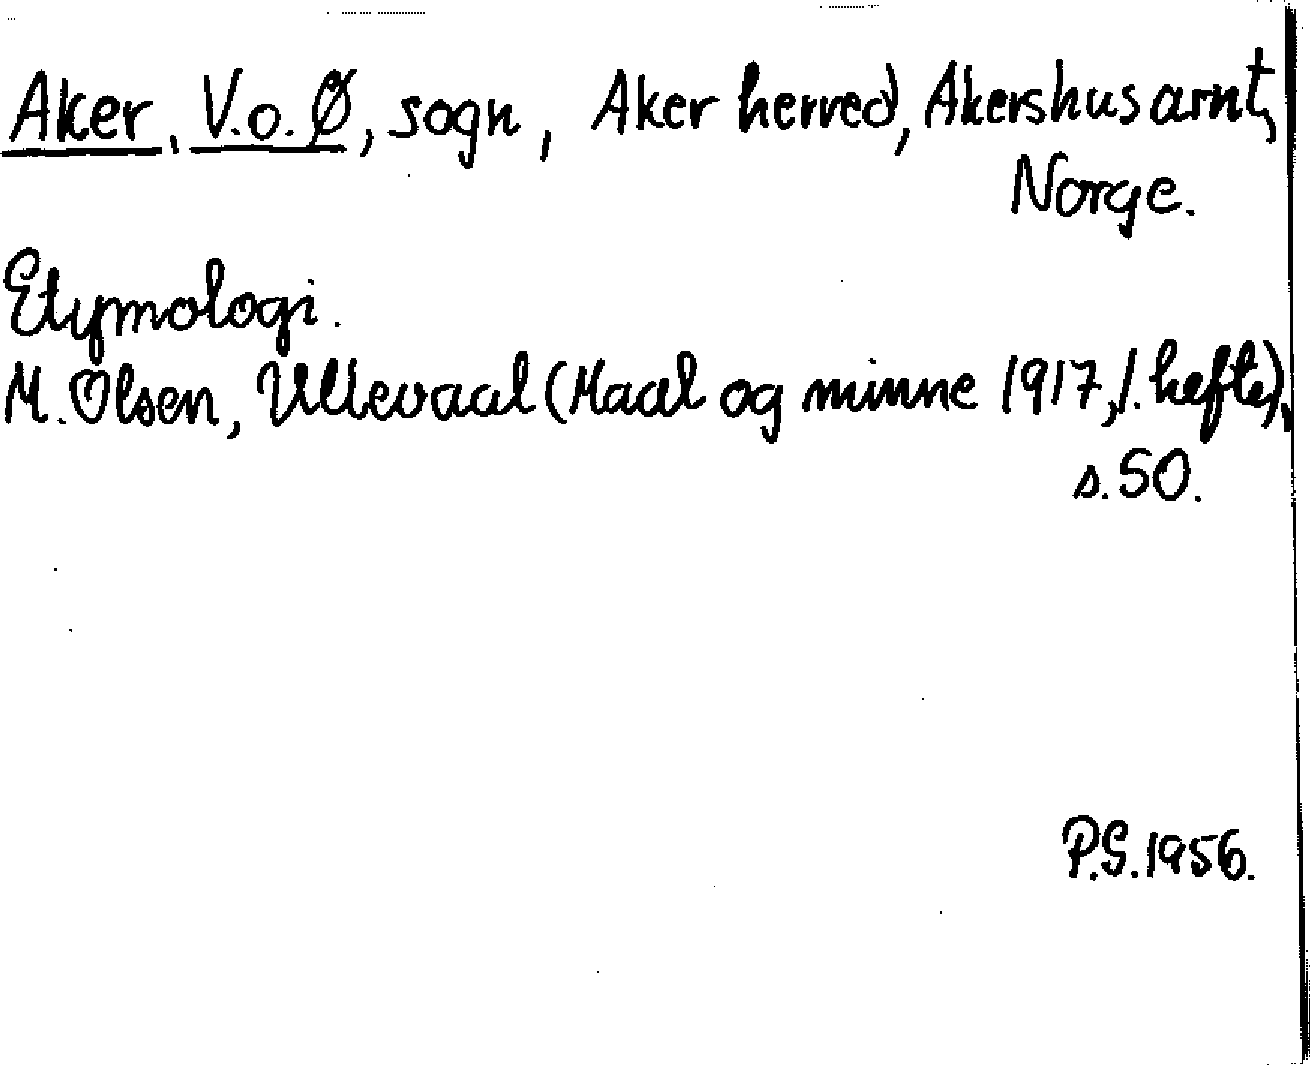 Aker, V.o.Ø, sogn, Aker herred, Akershus amt,
Norge.
Etymologi.
M. Olsen, Ullevaal (Maal og minne 1917, 1. hefte),
s. 50.
P.G. 1956.